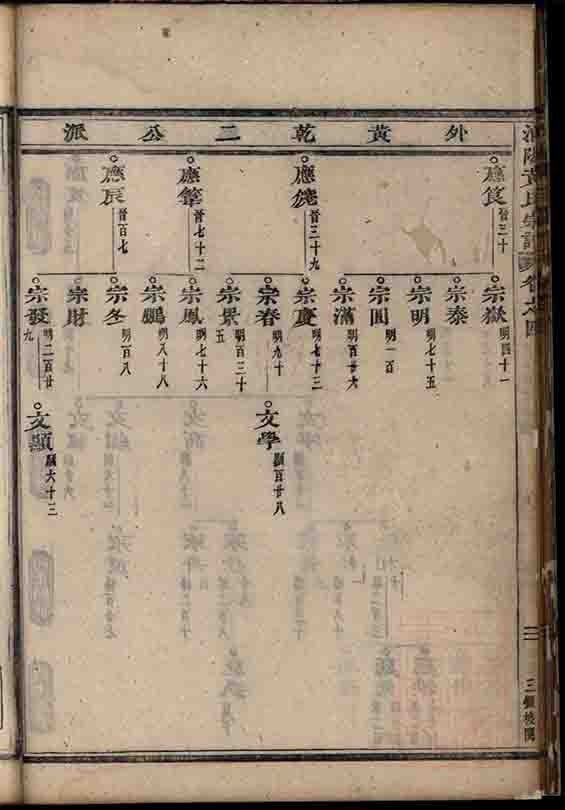 外黃乾二公派
應篒 晉三十
應僥 晉三十九
應肇 晉七十二
應辰 晉百七
宗嶽 明四十一
宗泰
宗明 明七十五
宗圓 明一百
宗滿 明百廿六
宗慶 明七十三
宗春 明九十
宗景 明百三十五
宗鳳 明七十六
宗鵬 明八十八
宗冬 明百八
宗財
宗發 明二百廿九
文學 顯百廿八
文顯 顯六十三
黃氏宗譜 卷之四